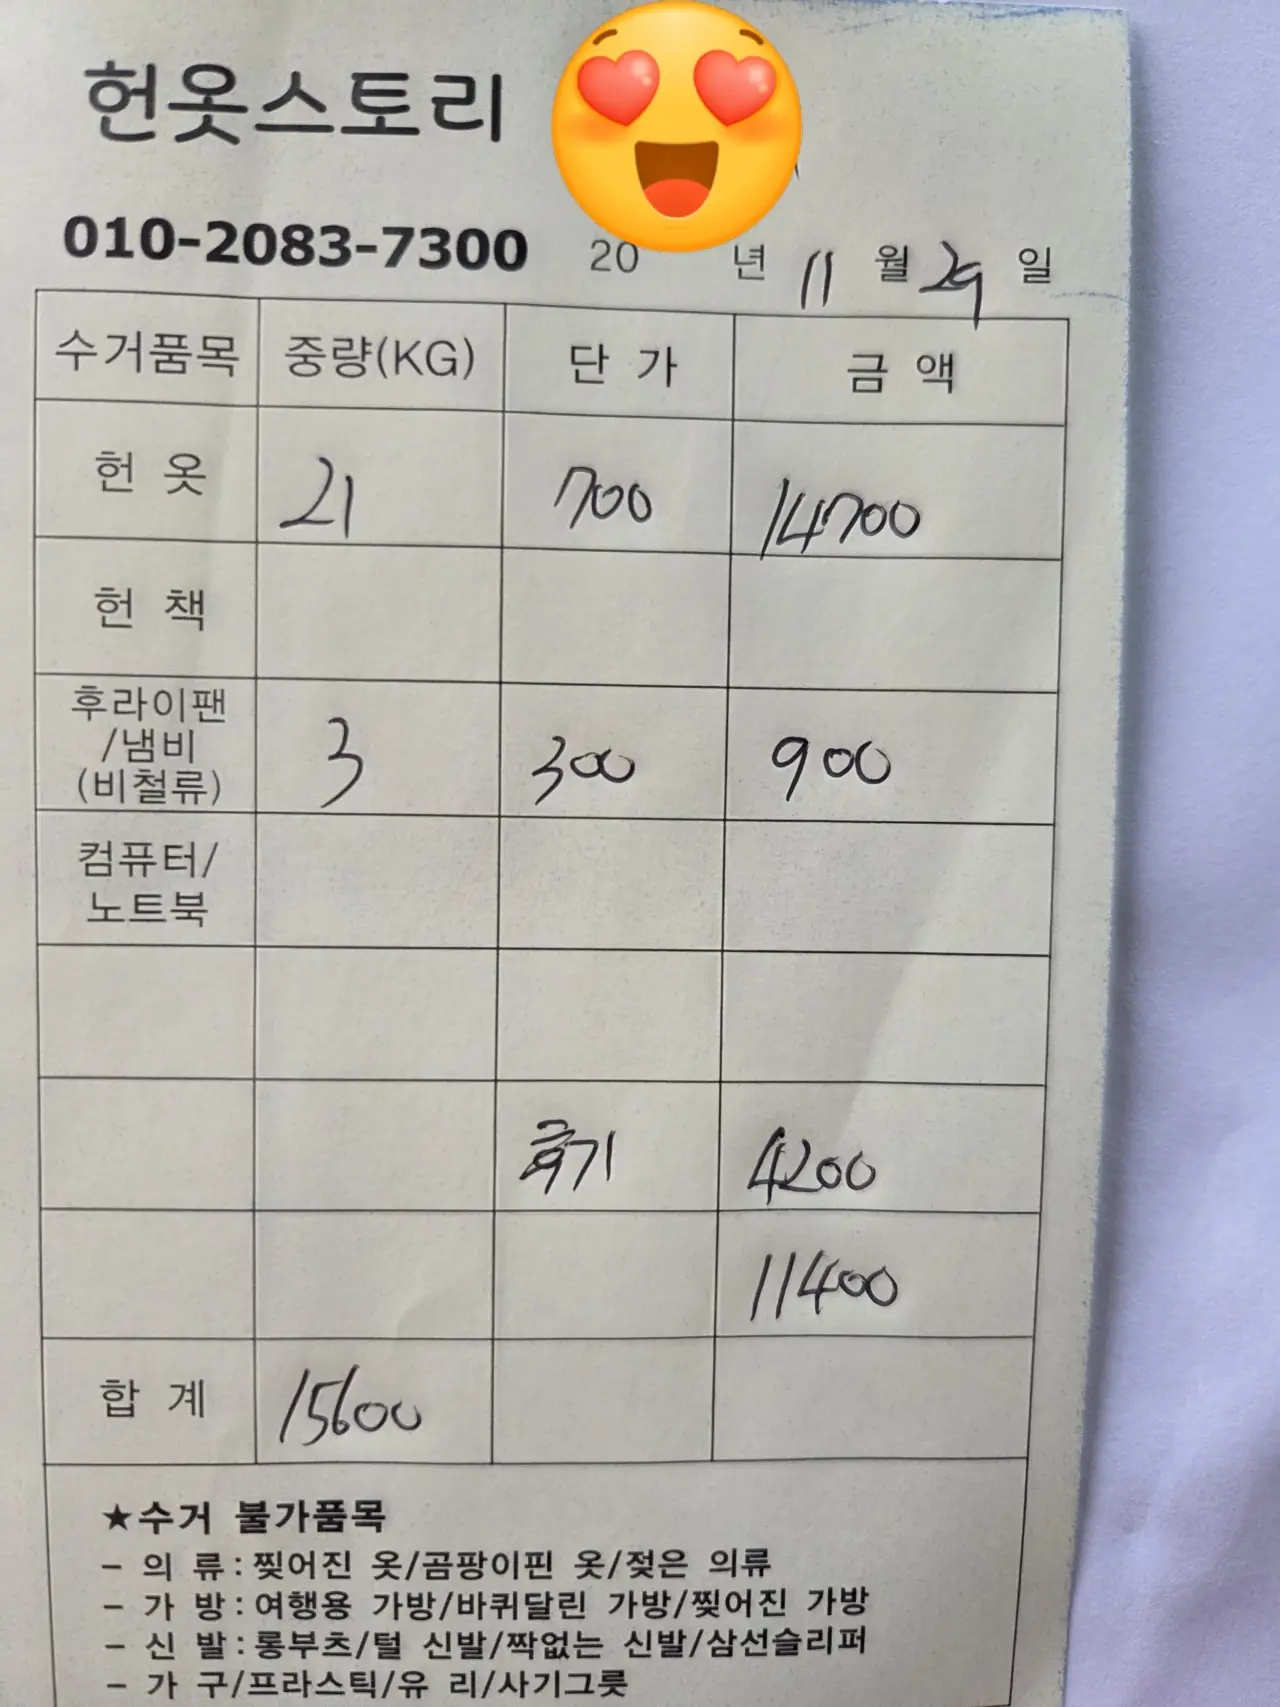 헌옷스토리
010-2083-7300 20 년 11 월 29 일
수거품목 중량(KG) 단 가 금 액
헌 옷 21 700 14700
헌 책
후라이팬
/냄비
(비철류) 3 300 900
컴퓨터/
노트북
4200
11400
합 계 15600
★수거 불가품목
- 의 류 : 찢어진 옷/곰팡이핀 옷/젖은 의류
- 가 방 : 여행용 가방/바퀴달린 가방/찢어진 가방
- 신 발 : 롱부츠/털 신발/짝없는 신발/삼선슬리퍼
- 가 구/프라스틱/유 리/사기그릇